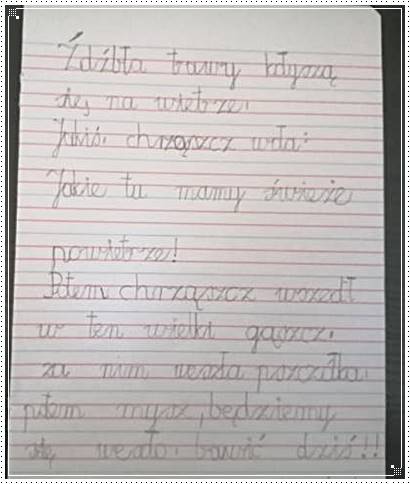 Źdźbła trawy kłyszą
się na wietrze.
Jakiś chrząszcz woła:
Jakie tu mamy świeże
powietrze!
Potem chrząszcz wszedł
w ten wielki gąszcz.
za nim weszła pszczółka.
potem mysz, będziemy
się wesoło bawić dziś!!